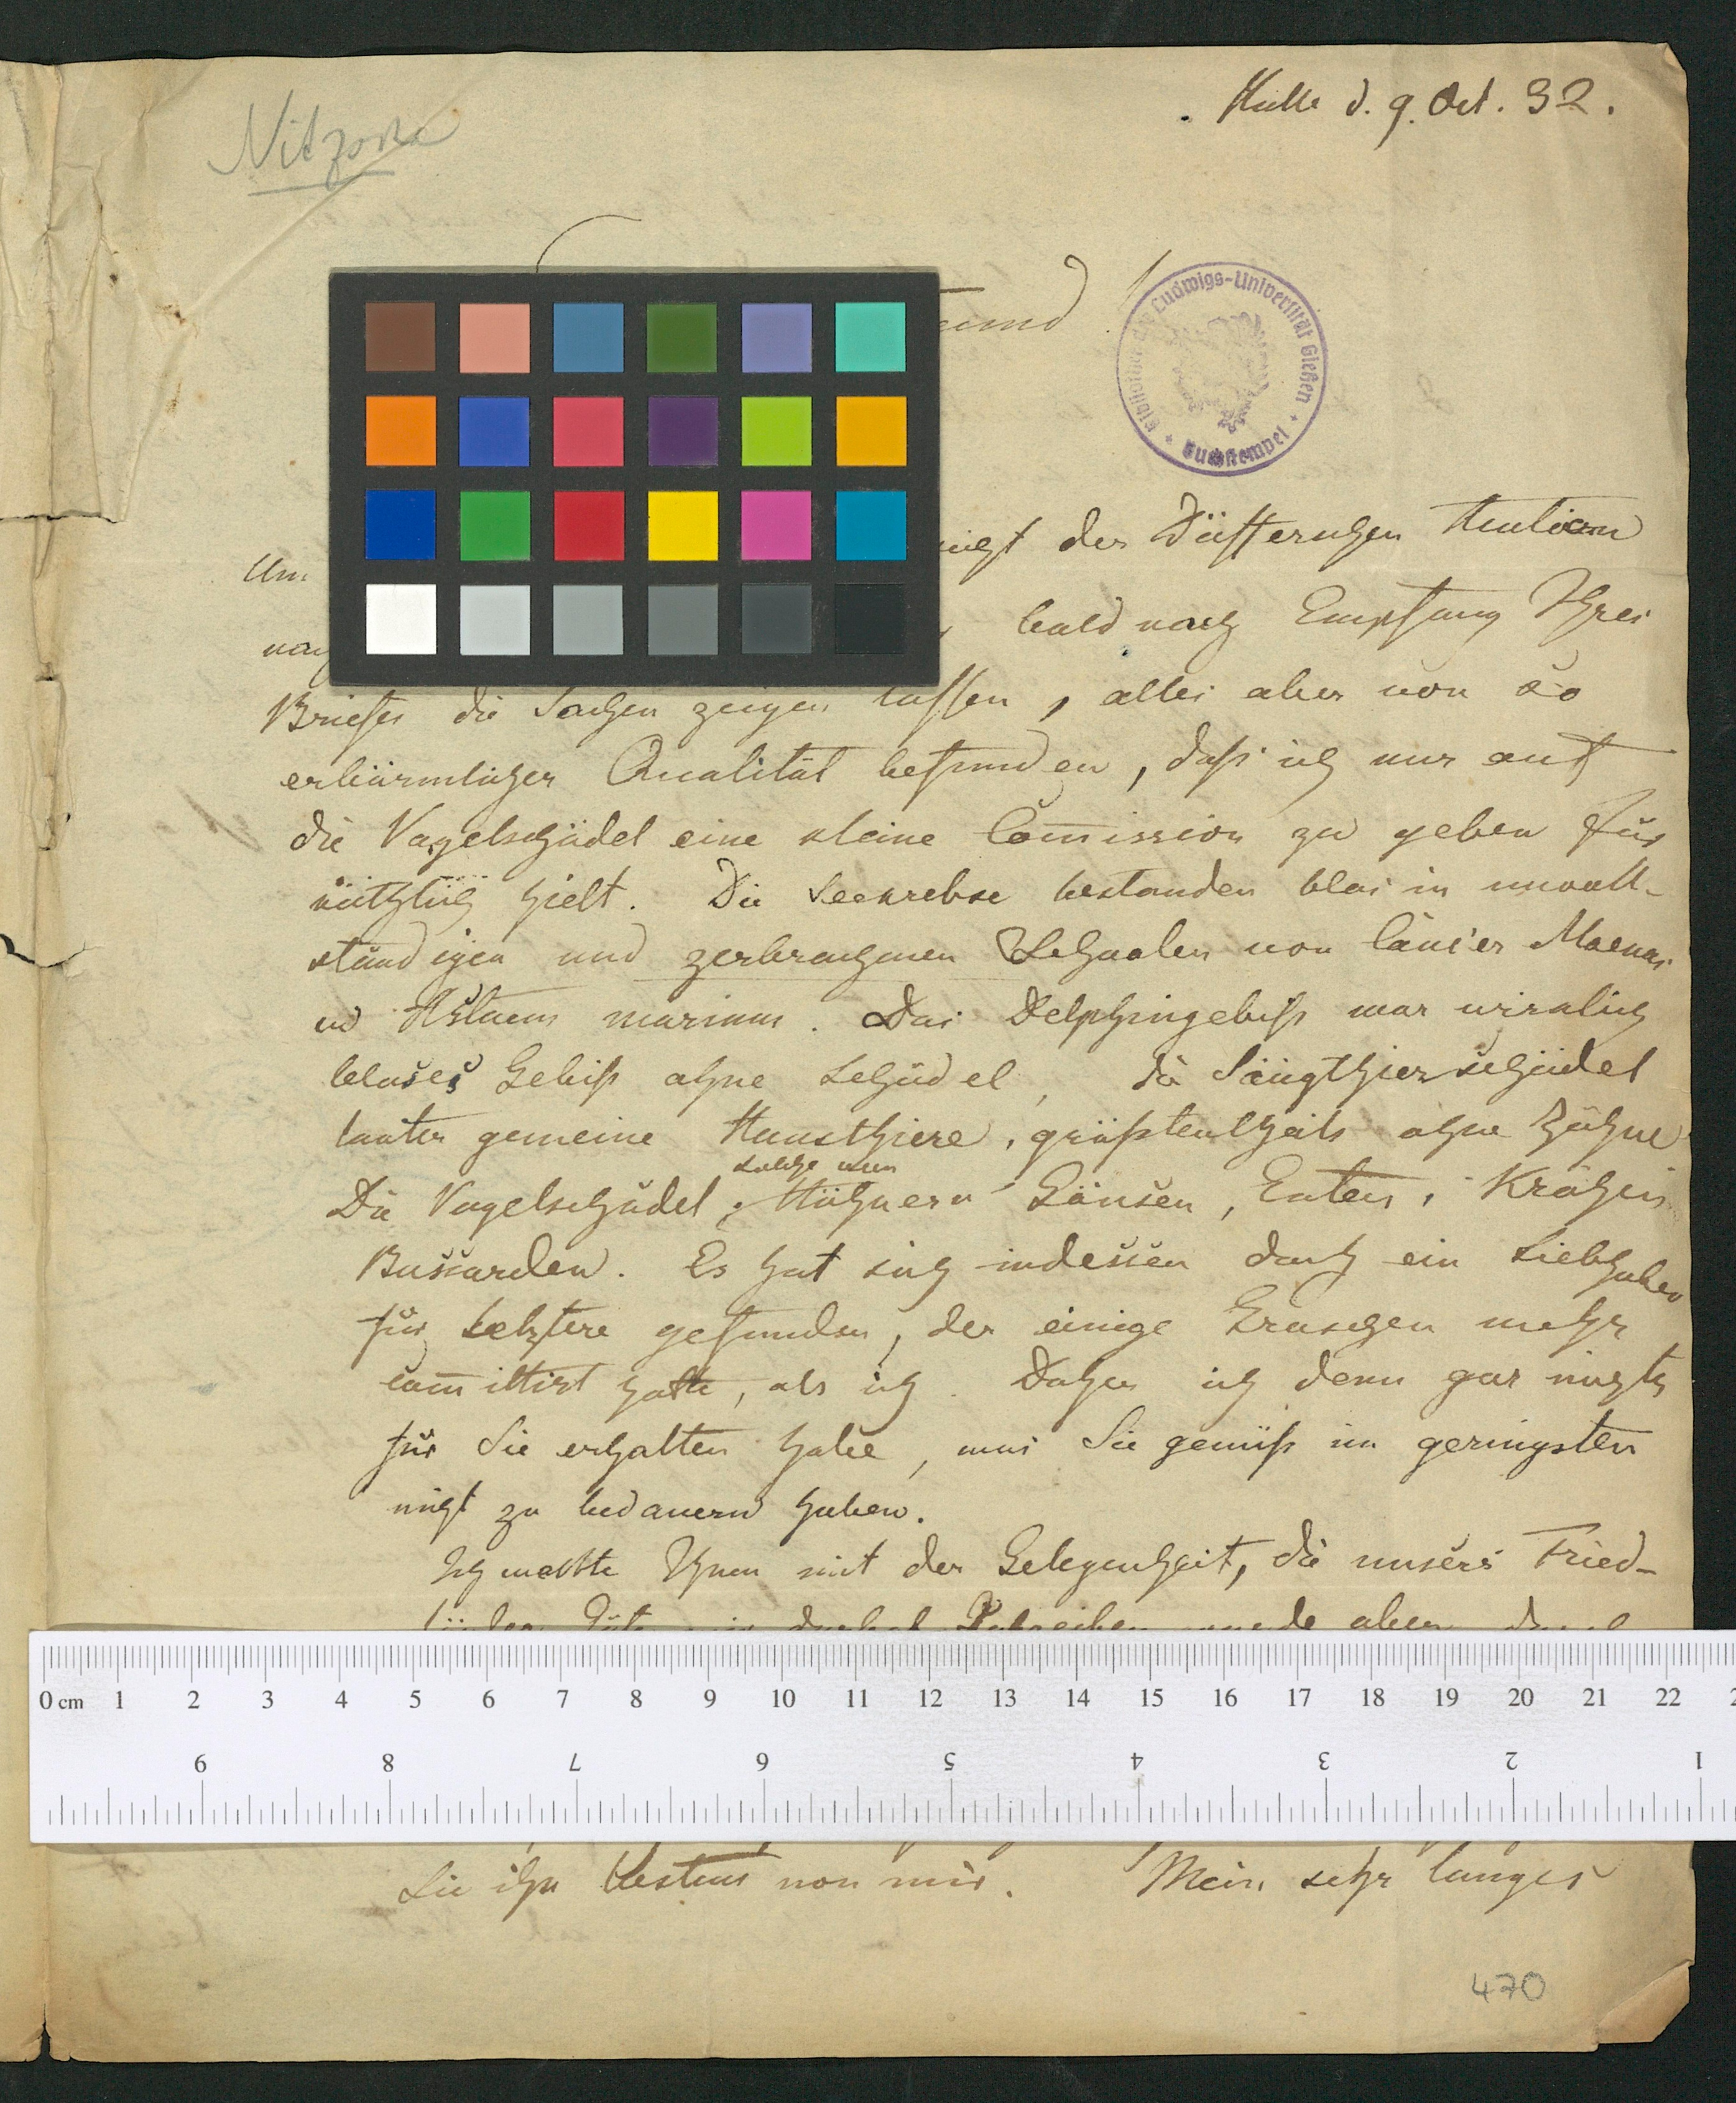 Halle d. 9. Oct. 32.
Nitzsch
Bibliothek der Ludwigs-Universität Gießen
Buchstempel
nicht der Düfferschen Auction
bald nach Empfang Ihres
Briefes die Sachen zeigen lassen, alles aber von so
erbärmlicher Qualität befunden, daß ich nur auf
die Vogelschädel eine kleine Com̅ission zu geben für
nützlich hielt. Die Seekrebse bestanden blos in unvoll-
ständigen und zerbrochnen Schaalen von Cancer Maenas
u Astacus marinus. Das Delphingebiß war wirklich
bloses Gebiß ohne Schädel, die Säugthierschädel
lauter gemeine Hausthiere, größtentheils ohne Zähne
Die Vogelschädel, solche von Hühnern Gänsen, Enten, Krähen
Bussarden. Es hat sich indessen doch ein Liebhaber
für Letztere gefunden, der einige Groschen mehr
com̅ittirt hatte, als ich. Daher ich denn gar nichts
für Sie erhalten habe, was Sie gewiß im geringsten
nicht zu bedauern haben.
Ich wollte Ihnen mit der Gelegenheit, die unsers Fried-
0 cm 1 2 3 4 5 6 7 8 9 10 11 12 13 14 15 16 17 18 19 20 21 22
9 8 7 6 5 4 3 2 1
Sie ihn bestens von mir. Mein sehr langes
470